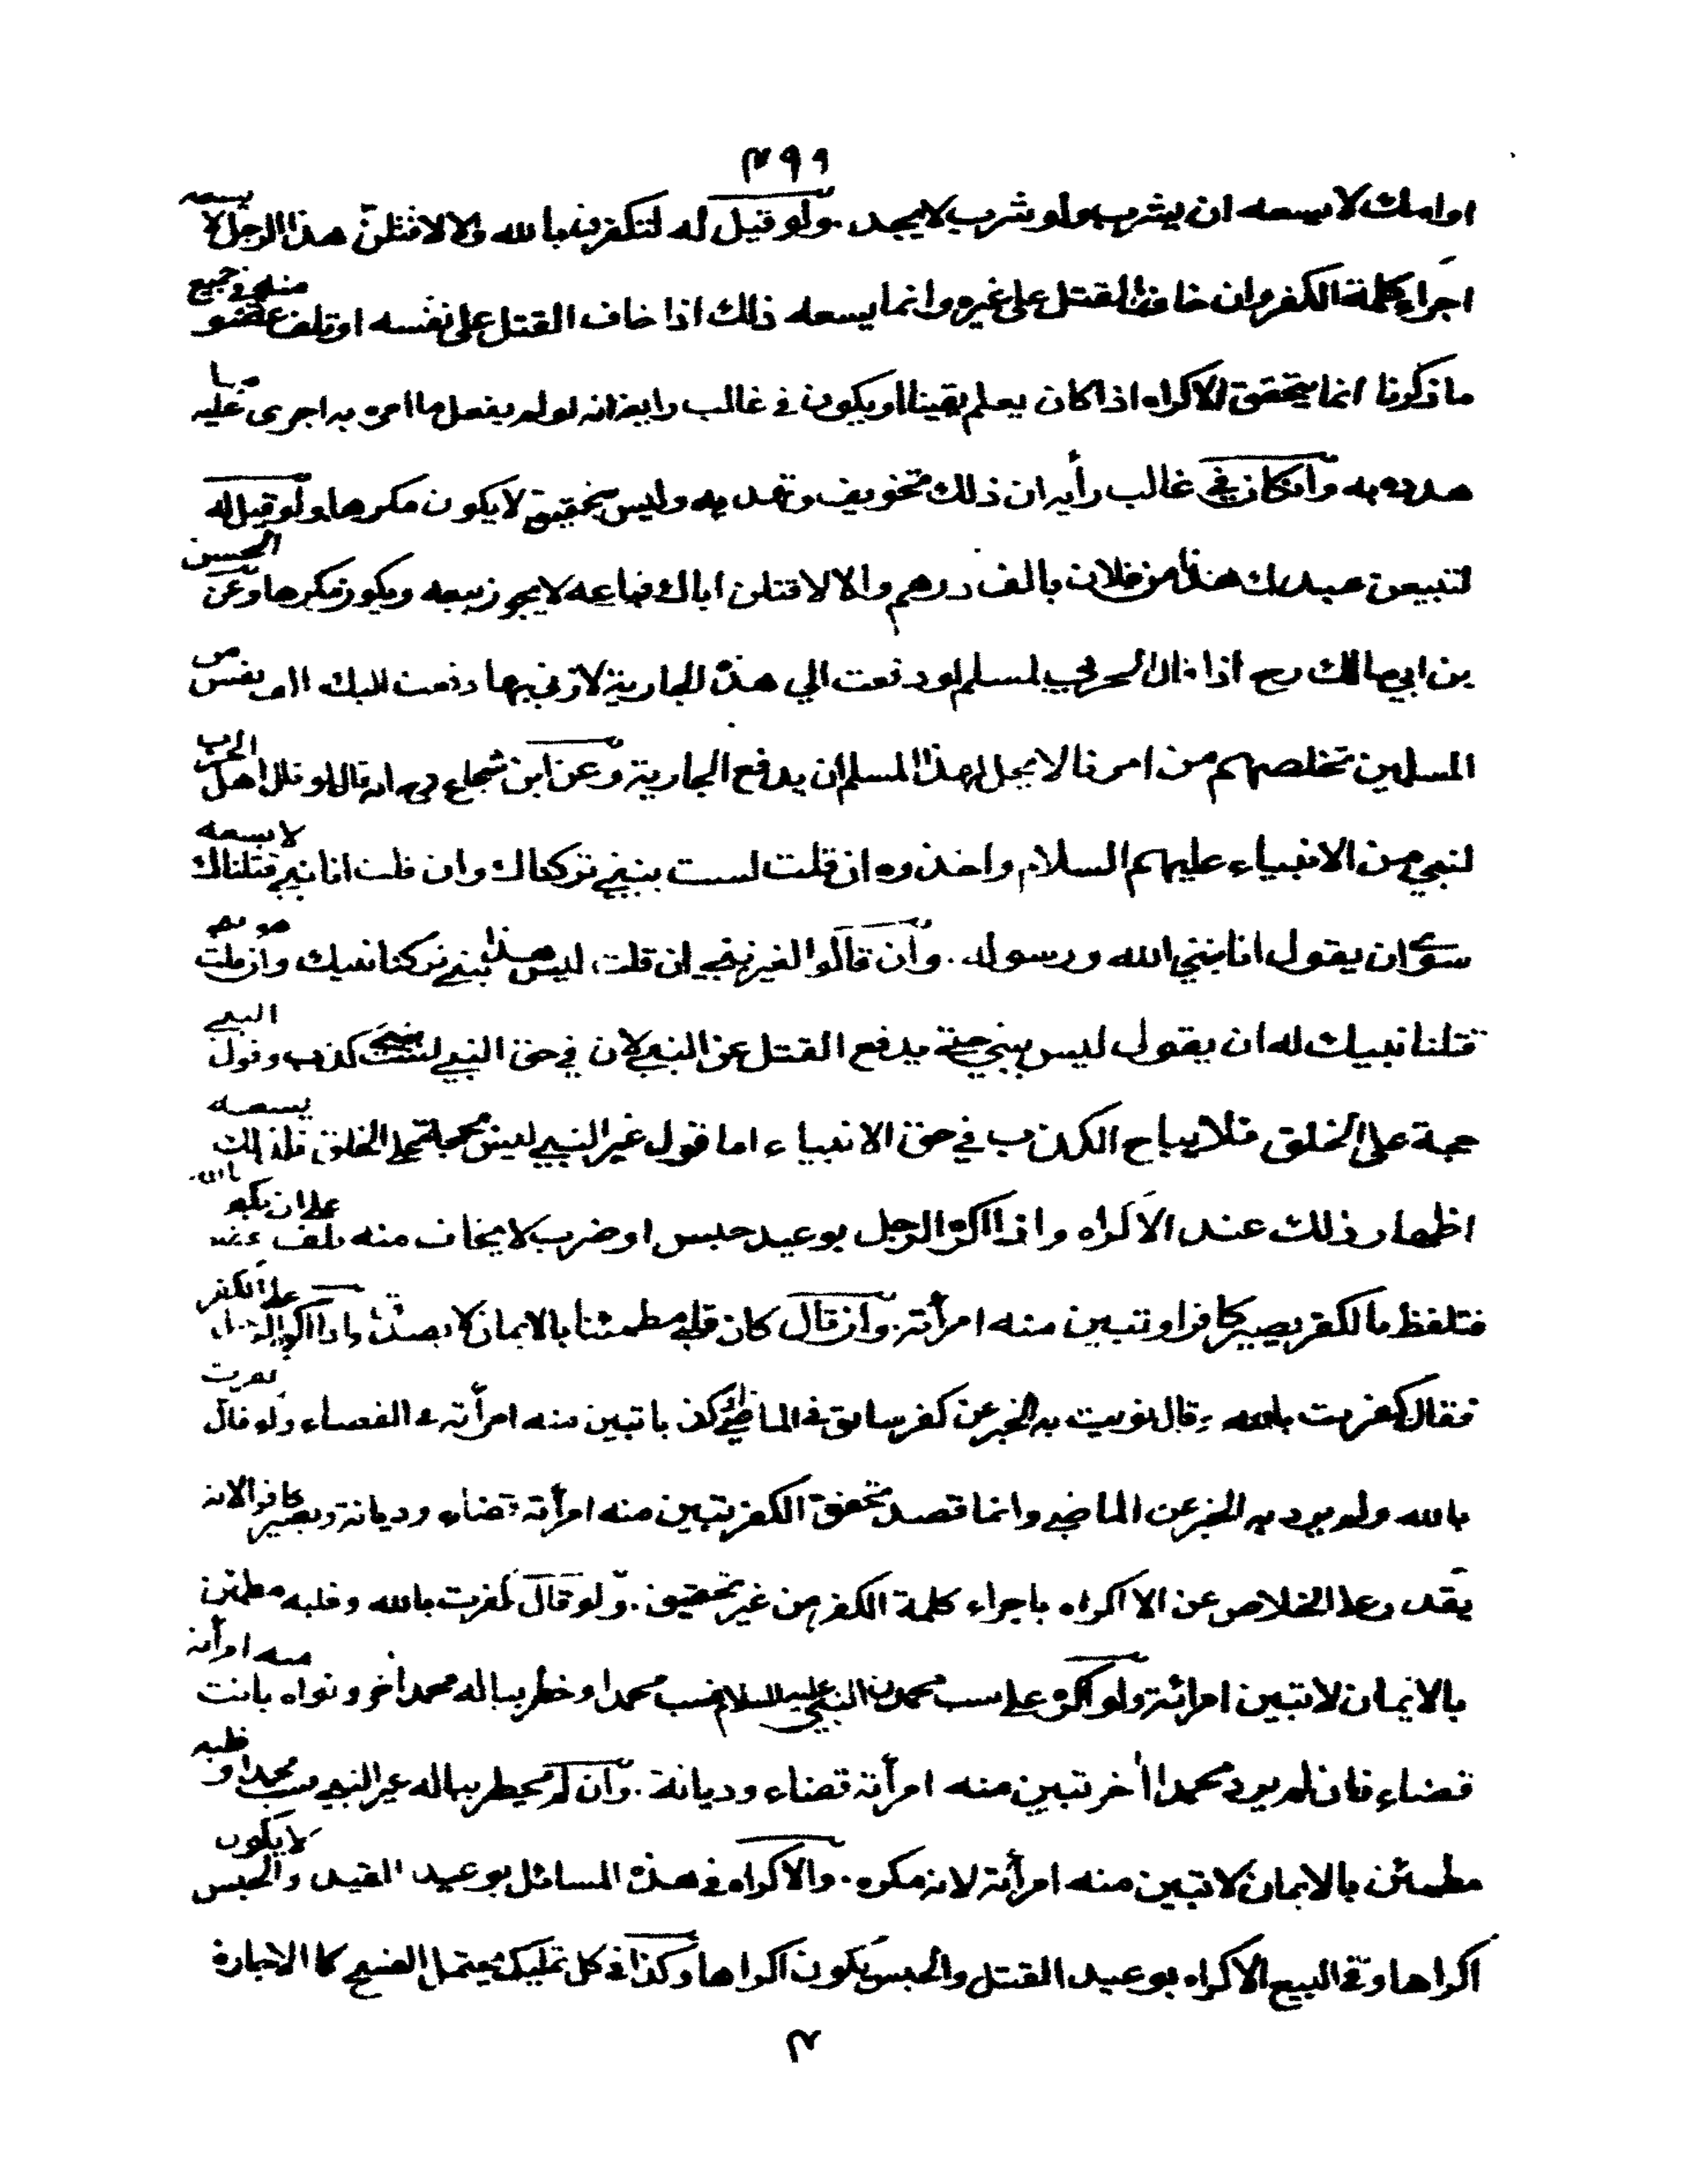 ۴۹۹
او امك لا يسعه ان يشرب ولو شرب لا يحد . ولو قيل له لتكفرن بالله والا لاقتلن هذا الرجل لا يسعه
اجراء كلمة الكفر وان خاف القتل على غيره وانما يسعه ذلك اذا خاف القتل على نفسه او تلف عضو منه وفي جميع
ما ذكرنا انما يتحقق الاكراه اذا كان يعلم يقينا او يكون في غالب رايه انه لو لم يفعل ما امره به اجرى عليه ما
هدده به وان كان في غالب رأيه ان ذلك تخويف وتهديد وليس بتحقيق لا يكون مكرها ولو قيل له
لتبيعن عبدك هذا من فلان بالف درهم والا لاقتلن اباك فباعه لا يجوز بيعه ويكون مكرها وعن الحسن
بن ابي مالك رح اذا قال الحربي لمسلم لو دفعت الي هذه الجارية لازني بها دفعت اليك الف نفس من
المسلمين تخلصهم من امرنا لا يحل لهذا المسلم ان يدفع الجارية وعن ابن شجاع رح انه قال لو قال اهل الحرب
لنبي من الانبياء عليهم السلام واخذوه ان قلت لست بنبي تركناك وان قلت انا نبي قتلناك لا يسعه
سوى ان يقول انا نبي الله ورسوله . وان قالوا لغير نبي ان قلت ليس هذا بنبي تركنا نبيك وان قلت هو نبي
قتلنا نبيك له ان يقول ليس بنبي حتى يدفع القتل عن النبي لان في حق النبي لست بنبي كذب وقول النبي
حجة على الخلق فلا يباح الكذب في حق الانبياء اما قول غير النبي ليس بحجة على الخلق فلذلك يسعه
اظهار ذلك عند الاكراه واذا اكره الرجل بوعيد حبس او ضرب لا يخاف منه تلف عضو على ان يكفر بالله
فتلفظ بالكفر يصير كافرا وتبين منه امرأته . وان قال كان قلبي مطمئنا بالايمان لا يصدق واذا اكره على الكفر
فقال كفرت بالله وقال نويت به الخبر عن كفر سابق في الماضي كذبا تبين منه امرأته في القضاء ولو قال كفرت
بالله ولم يرد به الخبر عن الماضي وانما قصد تحقق الكفر تبين منه امرأته قضاء وديانة ويصير كافرا لانه
يقدر على الخلاص عن الاكراه باجراء كلمة الكفر من غير تحقيق . ولو قال كفرت بالله وقلبه مطمئن
بالايمان لا تبين امرأته ولو اكره على سب محمد النبي عليه السلام فسب محمدا وخطر بباله محمد اخر ونواه بانت منه امرأته
قضاء فان لم يرد محمدا اخر تبين منه امرأته قضاء وديانة . وان لم يخطر بباله غير النبي سب محمدا وقلبه
مطمئن بالايمان لا تبين منه امرأته لانه مكره . والاكراه في هذه المسائل بوعيد القيد والحبس لا يكون
اكراها وفي البيع الاكراه بوعيد القتل والحبس يكون اكراها وكذا في كل تمليك يحتمل الفسخ كالاجارة